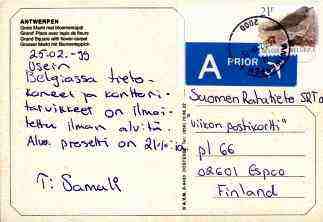 ANTWERPEN
Grote Markt met bloementapijt
Grand' Place avec tapis de fleurs
Grand Square with flower-carpet
Grosser Markt mit Blumenteppich
25.02.-99
Usein
Belgiassa tieto-
koneet ja konttori-
tarvikkeet on ilmoi-
tettu ilman alvitä.
Alv. prosetti on
T: Samuli
A PRIOR
21F
2000
Suomen Ratatieto SRT
"viikon postikortti"
pl 66
02601 Espoo
Finland